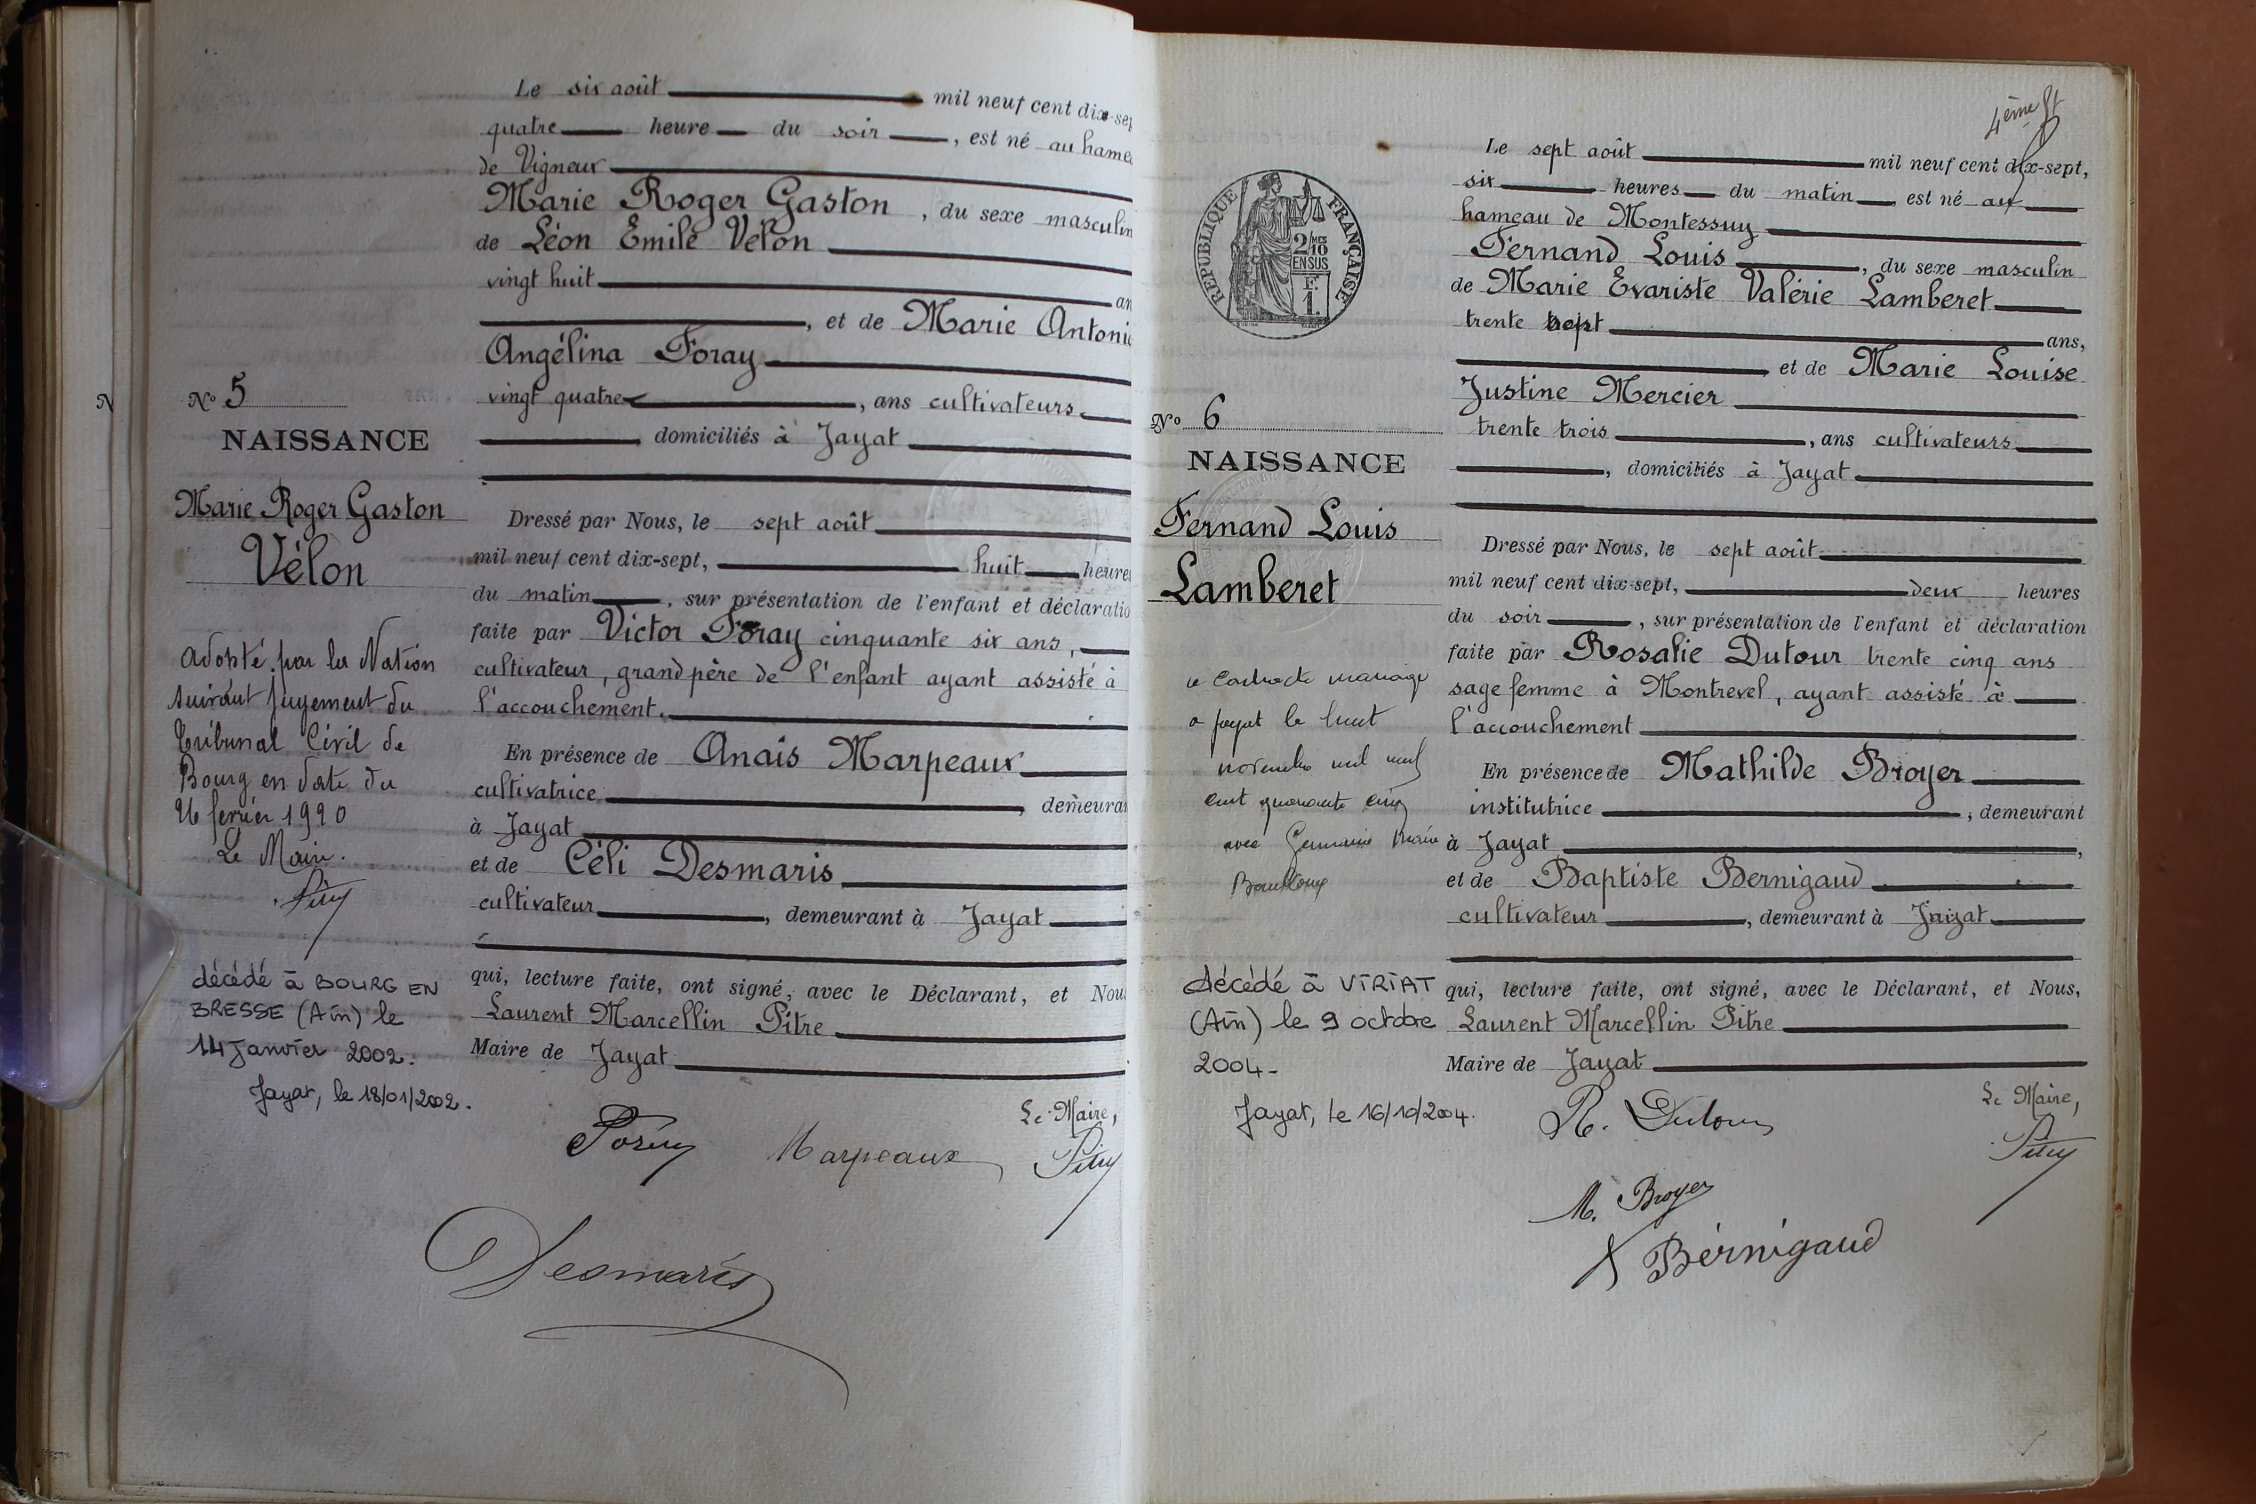 Le six août mil neuf cent dix-sep
quatre heure du soir, est né au hame
de Vigneux
Marie Roger Gaston, du sexe masculin
de Léon Emile Vélon
vingt huit an
, et de Marie Antoni
Angélina Foray
vingt quatre, ans cultivateurs
domiciliés à Jayat
N
No 5
NAISSANCE
Marie Roger Gaston
Vélon
Dressé par Nous, le sept août
mil neuf cent dix-sept, huit heures
du matin, sur présentation de l'enfant et déclaratio
faite par Victor Foray cinquante six ans,
cultivateur, grand père de l'enfant ayant assisté à
l'accouchement.
En présence de Anaïs Marpeaux
cultivatrice, demeuran
à Jayat
et de Céli Desmaris
cultivateur, demeurant à Jayat
qui, lecture faite, ont signé, avec le Déclarant, et Nous
Laurent Marcellin Pitre
Maire de Jayat
Le Maire,
Foray Marpeaux Pitre
Desmaris
Adopté par la Nation
suivant jugement du
Tribunal Civil de
Bourg en date du
26 février 1920
Le Maire.
Pitre
décédé à BOURG EN
BRESSE (Ain) le
14 Janvier 2002.
Jayat, le 18/01/2002.
4ème ft
REPUBLIQUE FRANÇAISE
2/10 MES
EN SUS
F.
1.
Le sept août mil neuf cent dix-sept,
six heures du matin est né au
hameau de Montessuy
Fernand Louis, du sexe masculin
de Marie Evariste Valérie Lamberet
trente sept ans,
et de Marie Louise
Justine Mercier
trente trois, ans cultivateurs
, domiciliés à Jayat
No 6
NAISSANCE
Fernand Louis
Lamberet
Dressé par Nous, le sept août
mil neuf cent dix-sept, deux heures
du soir, sur présentation de l'enfant et déclaration
faite par Rosalie Dutour trente cinq ans
sage femme à Montrevel, ayant assisté à
l'accouchement
En présence de Mathilde Broyer
institutrice, demeurant
à Jayat,
et de Baptiste Bernigaud
cultivateur, demeurant à Jayat
qui, lecture faite, ont signé, avec le Déclarant, et Nous,
Laurent Marcellin Pitre
Maire de Jayat
Le Maire,
R. Dutour Pitre
M. Broyer
Bérnigaud
a contracté mariage
a Jayat le huit
novembre mil neuf
cent quarante cinq
avec Germaine Marie
décédé à VIRIAT
(Ain) le 9 octobre
2004-
Jayat, le 16/10/2004.